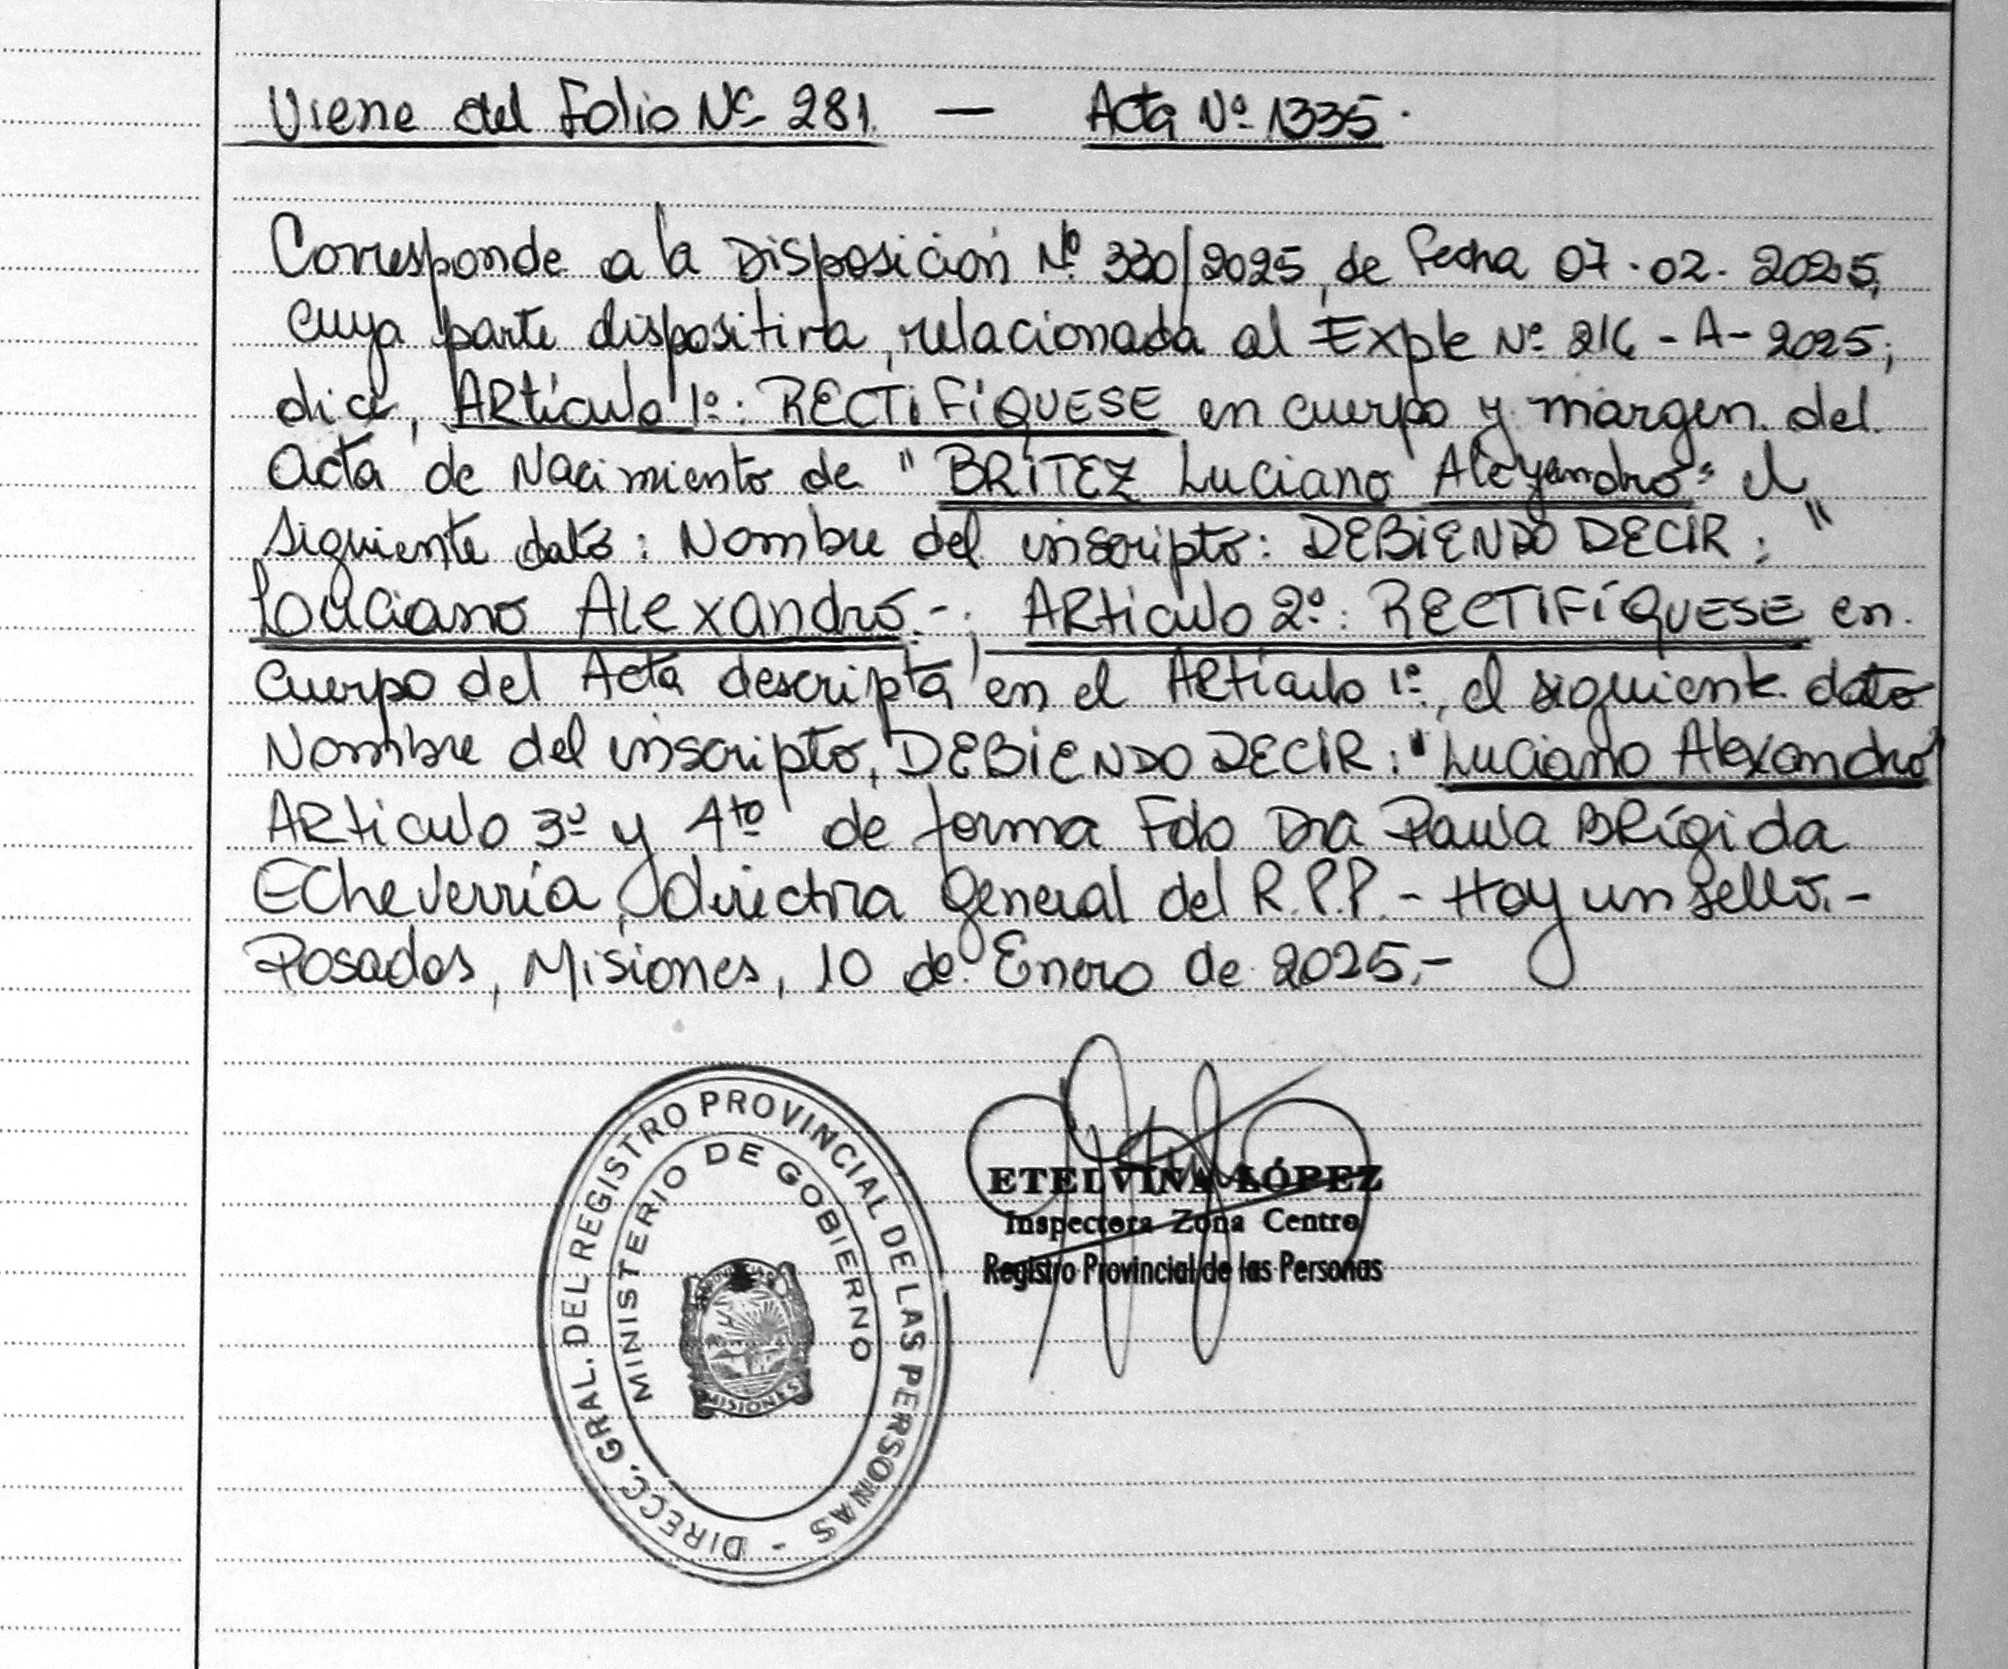 Viene del Folio Nº 281 — Acta Nº 1335.
Corresponde a la Disposición Nº 330/2025, de fecha 07.02.2025,
cuya parte dispositiva, relacionada al Expte Nº 216-A-2025,
dice, Artículo 1º: RECTIFÍQUESE en cuerpo y margen del
acta de Nacimiento de "BRITEZ Luciano Aleyandro" el
siguiente dato: Nombre del inscripto: DEBIENDO DECIR: "
Louciano Alexandro.-, ARticulo 2º: RECTIFÍQUESE en
cuerpo del Acta descripta en el Artículo 1º, el siguiente dato
Nombre del inscripto, DEBIENDO DECIR: "Luciano Alexandro"
ARticulo 3º y 4to de forma Fdo Dra Paula BRígida
Echeverría, directora general del R.P.P.- Hay un sello.-
Posadas, Misiones, 10 de Enero de 2025.-
DIRECC. GRAL. DEL REGISTRO PROVINCIAL DE LAS PERSONAS -
MINISTERIO DE GOBIERNO
MISIONES
ETELVINA LÓPEZ
Inspectora Zona Centro
Registro Provincial de las Personas